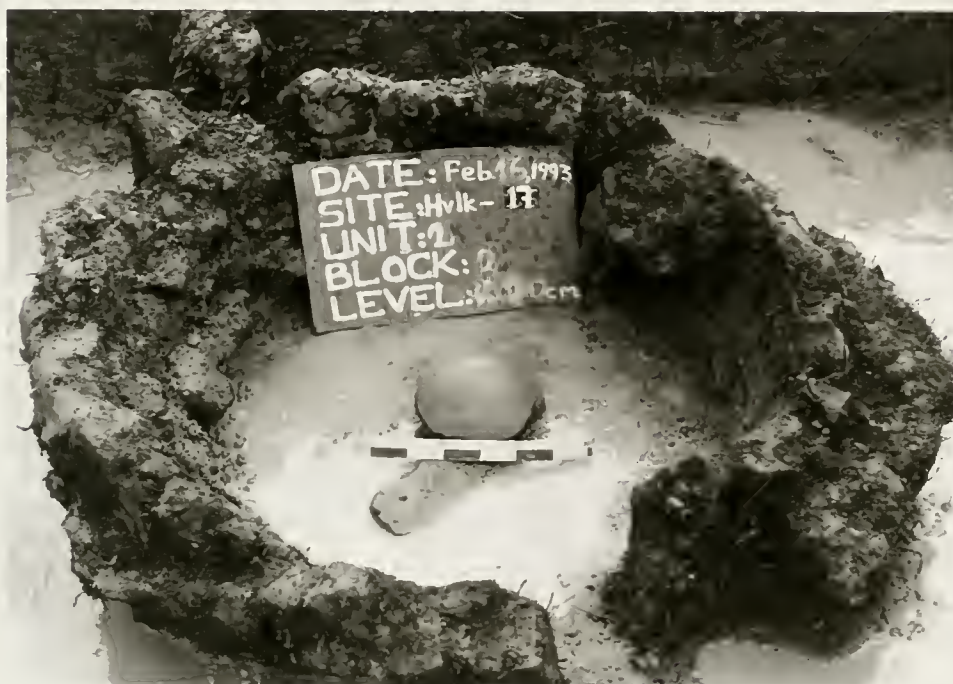 DATE: Feb.16,1993
SITE: Hvlk- 17
UNIT: 2
BLOCK:
LEVEL: cm